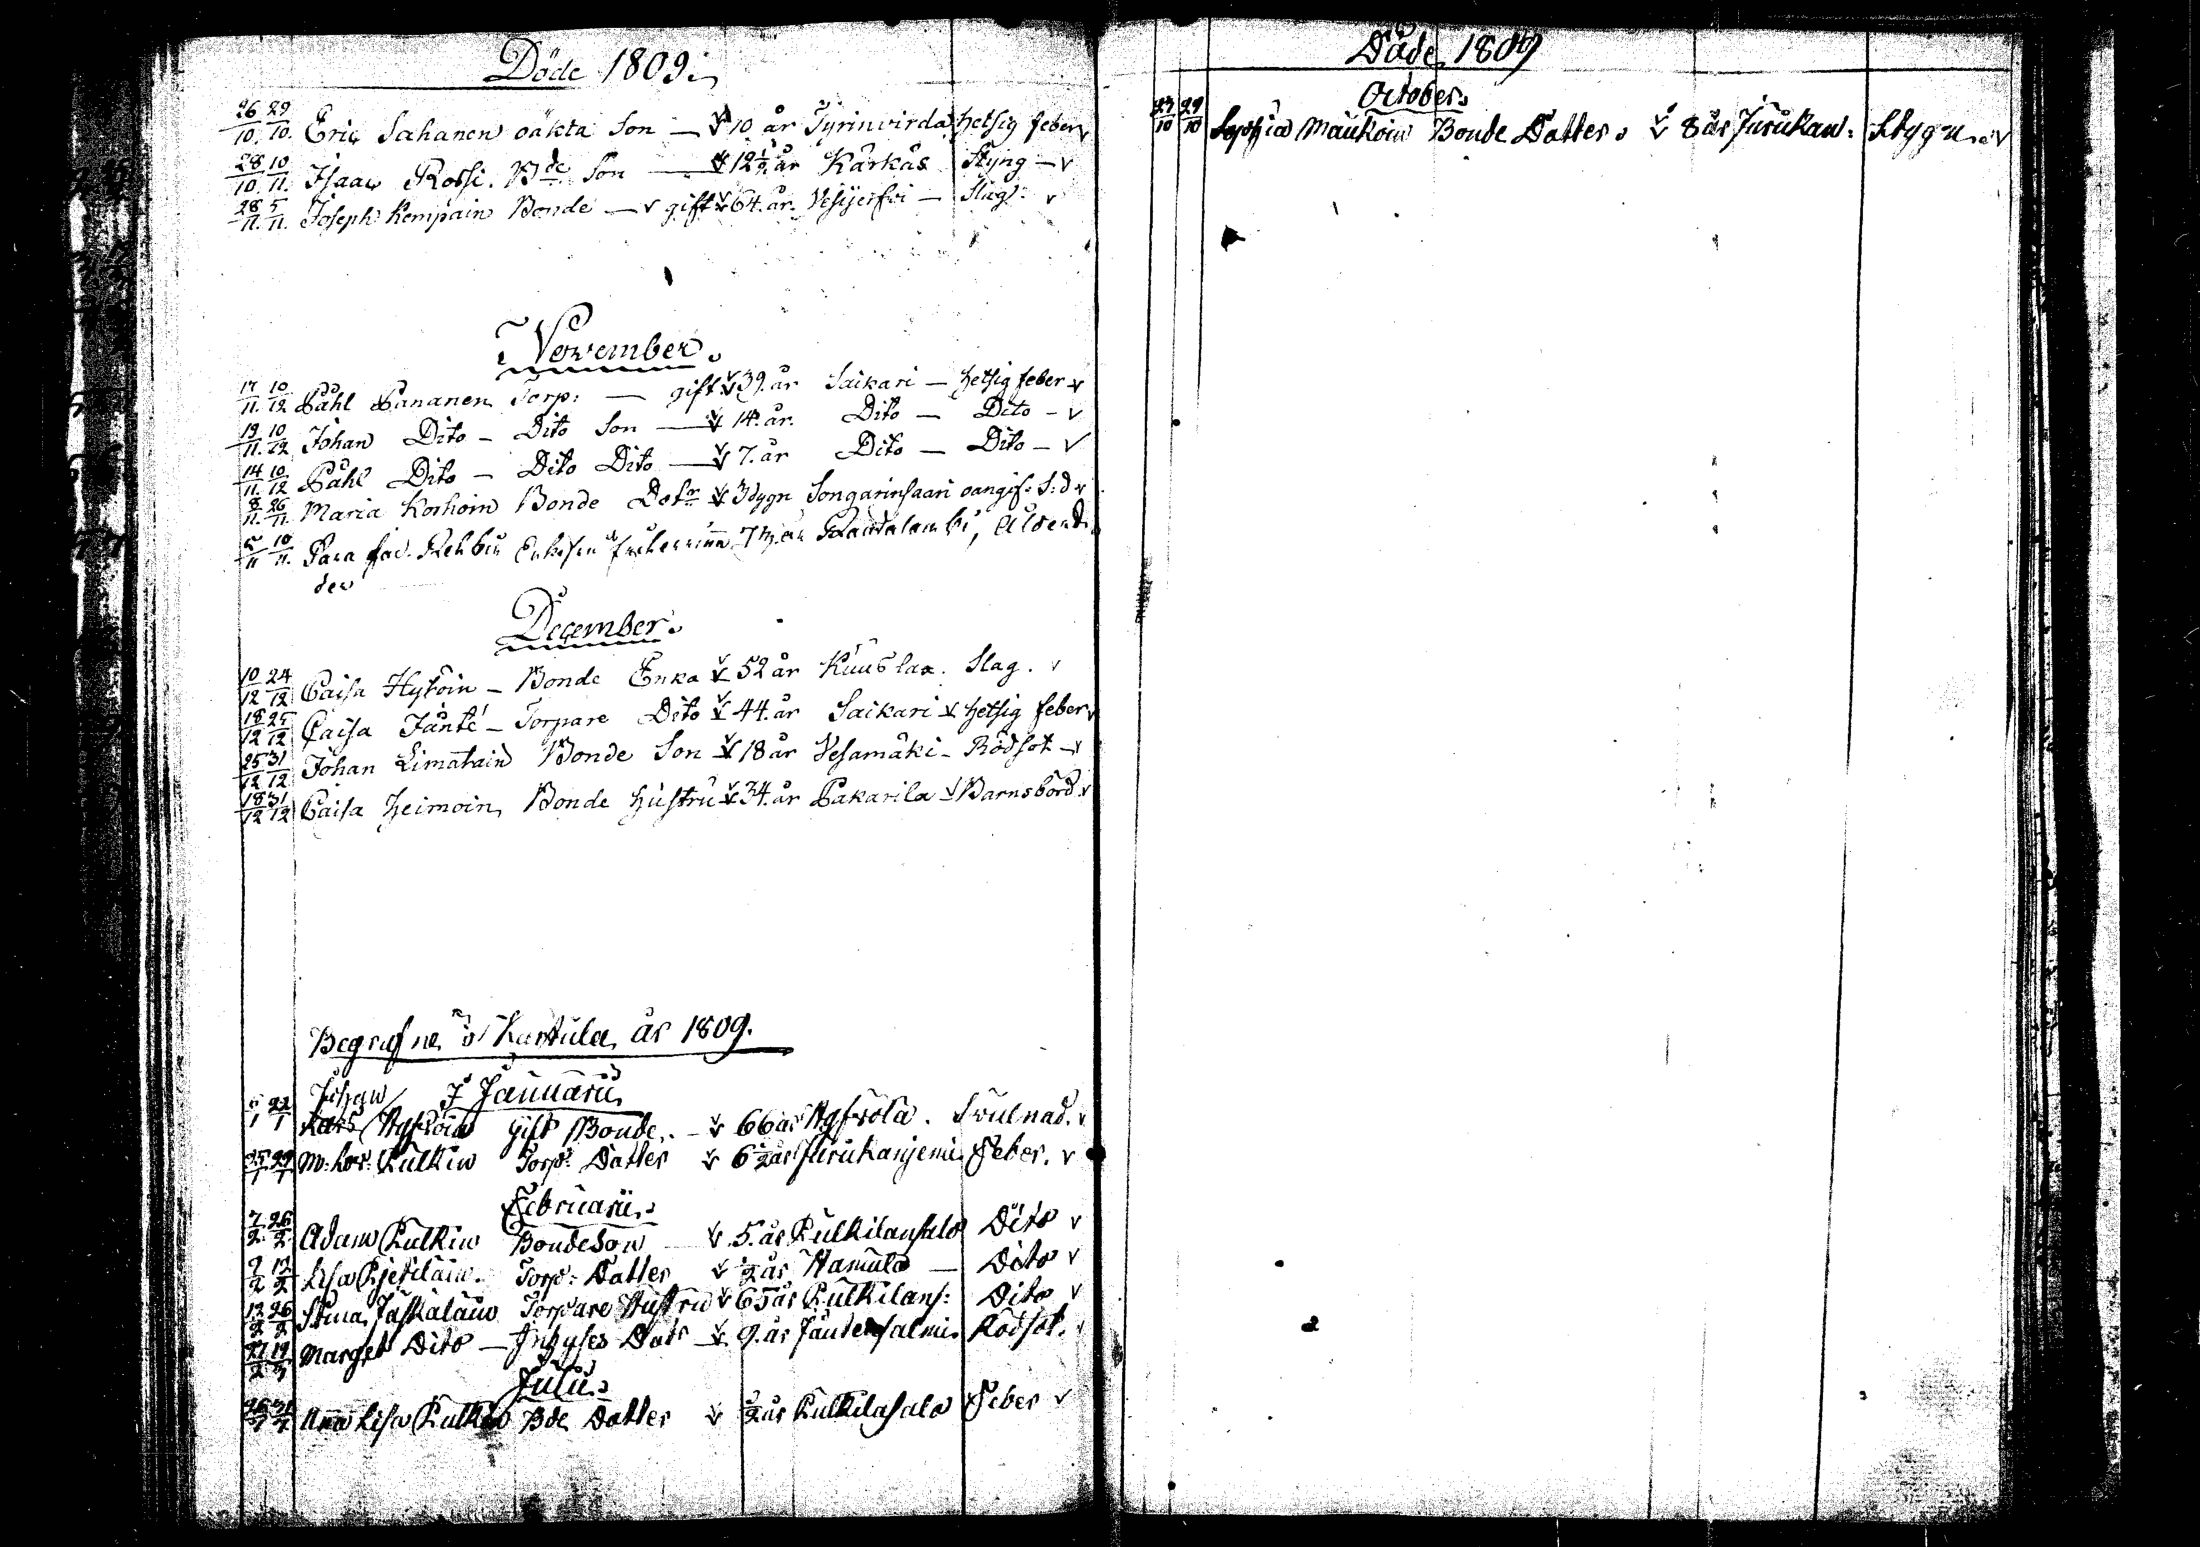 Döde 1809.
26/10. 29/10. Eric Sahanen oäkta Son — 10 år Tyrinvirda hetsig feber
28/10 10/11. Isaac Rossi. Bde Son — 12 1/2 år Kärkäs Styng —
28/11. 5/11. Joseph Kempain Bonde — gift 64. år. Vesijerfvi — Slag.
November.
17/11. 10/12 Påhl Pananen Torp: — gift 39. år Saikari — hetsig feber
19/11. 10/12 Johan Dito — Dito Son — 14. år. Dito — Dito —
14/11. 10/12 Påhl Dito — Dito Dito — 7. år Dito — Dito —
8/11. 26/11. Maria Korhoin Bonde Dotr 3 dygn Songarinsaari oangif: S:d
5/11 10/11. Rehbin Rautalambi, Ålderdo
der
December.
10/12 24/12 Caisa Hytöin — Bonde Enka 52 år Kuuslax. Slag.
18/12 25/12 Caisa Jänte — Torpare Dito 44. år Saikari hetsig feber
25/12 31/12 Johan Limatain Bonde Son 18 år Vesamäki — Rödsot —
18/12 31/12 Caisa Heimoin Bonde hustru 34. år Pakarila Barnsbörd
Begrafne i Karttula år 1809.
I Januarii
Johan
5/1 22/1 Hyfköin Gift Bonde. — 66 år Hyfvölä. Svulnad.
25/1 29/1 Pulkin Torp: Datter 6 1/2 år Jurukanjemi Feber.
Februarii.
7/2. 26/2. Adam Pulkin Bondeson 5. år Pulkilansalo Dito
2/2 12/2 Lisa Pjetiläin. Torp: Datter 1/2 år Hamula — Dito
12/2 26/2 Stina Jäskäläin Torpare Hustru 65 år Pulkilans: Dito
27/2 19/3 Marget Dito — Inhyses Dotr 9. år Jäntensalmi. Rödsot.
Julii.
26/7 31/7 Anna Lisa Pulkin Bde Datter 3/2 år Pulkilasalo Feber
Döde 1809
October.
23/10 29/10 Sophia Maukoin Bonde Datter. 8 år Jurukan: Stygn.